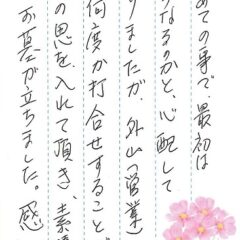 めての事で、最初は
うなるのかと、心配して
りましたが、外山(営業)
何度か打合せすること
の思を入れて頂き、素
お墓が立ちました。感